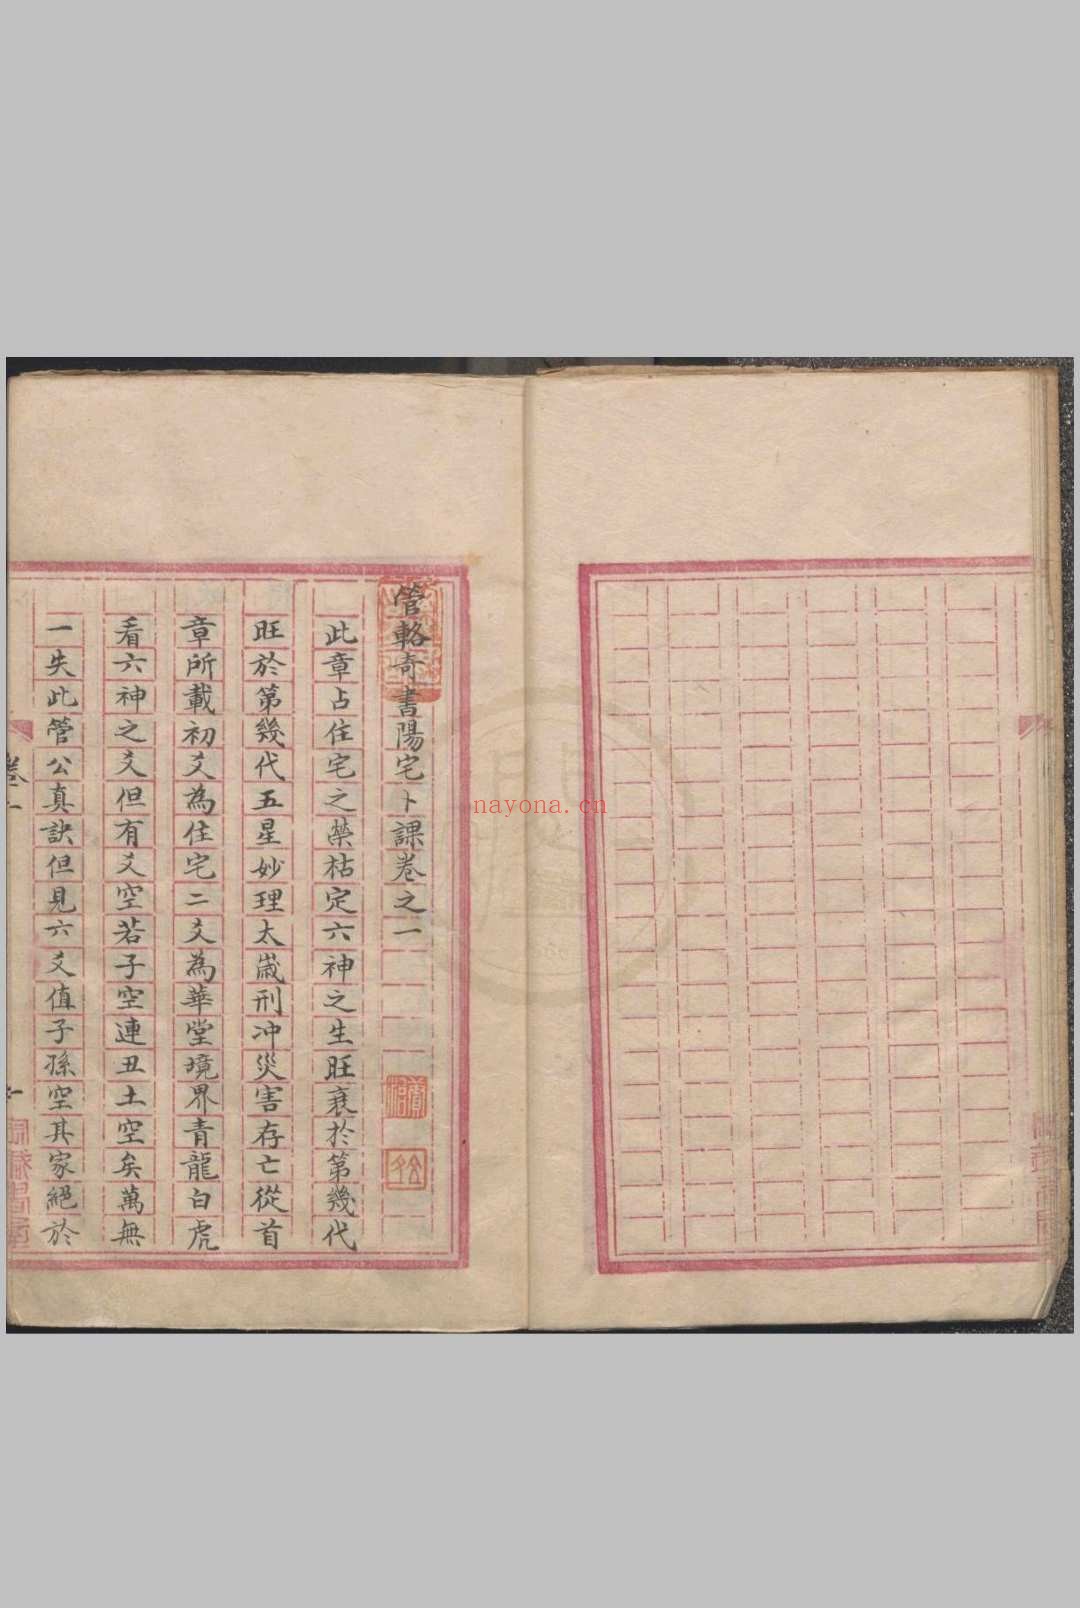 管輅奇書陽宅卜課卷之一
此章占住宅之榮枯定六神之生旺衰於第幾代
旺於第幾代五星妙理太歲刑冲災害存亡從首
章所載初爻為住宅二爻為華堂境界青龍白虎
看六神之爻但有爻空若子空連丑土空矣萬無
一失此管公真訣但見六爻值子孫空其家絕於
卷一
nayona.cn